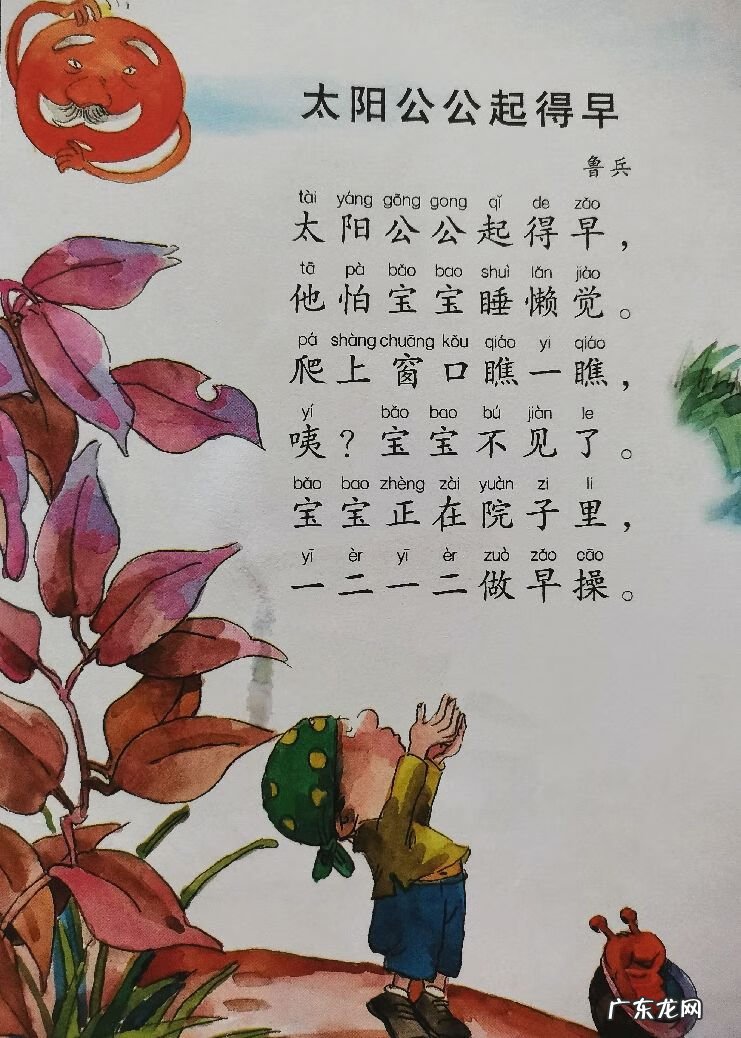 太阳公公起得早
鲁兵
tài yáng gōng gong qǐ de zǎo
太阳公公起得早，
tā pà bǎo bao shuì lǎn jiào
他怕宝宝睡懒觉。
pá shàng chuāng kǒu qiáo yi qiáo
爬上窗口瞧一瞧，
yí bǎo bao bú jiàn le
咦？宝宝不见了。
bǎo bao zhèng zài yuàn zi li
宝宝正在院子里，
yī èr yī èr zuò zǎo cāo
一二一二做早操。
广东龙网